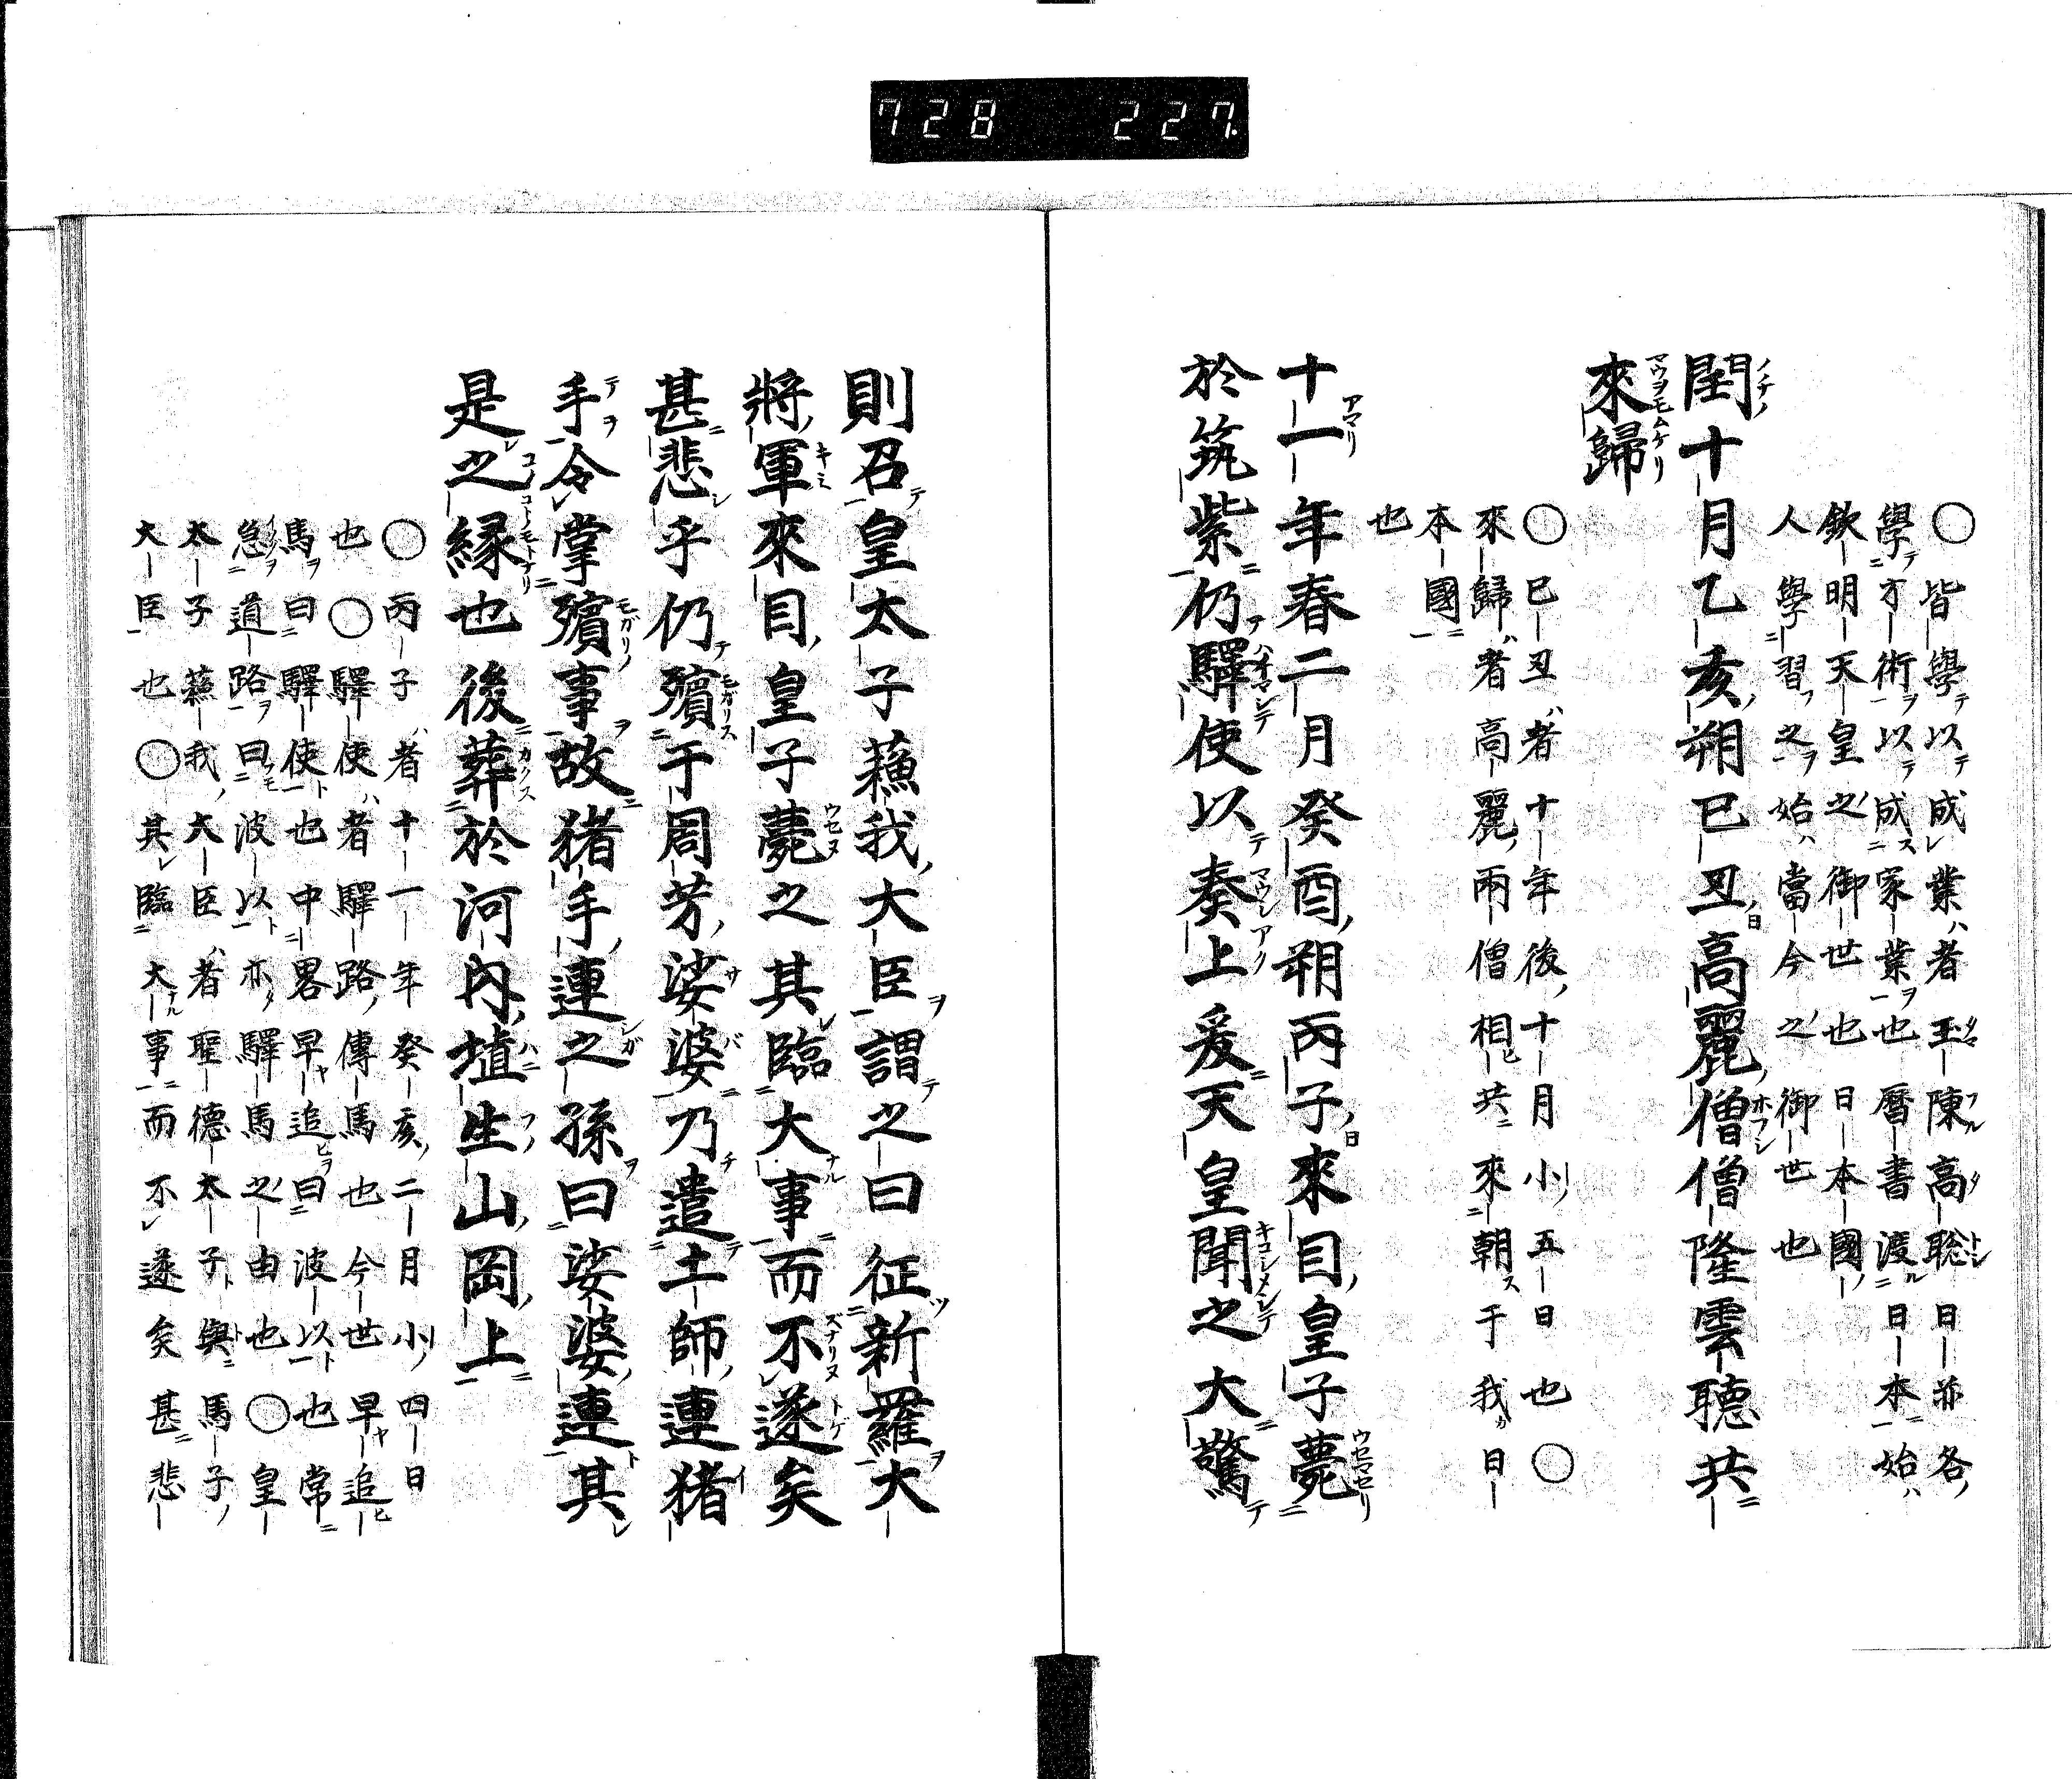 728 227
○皆學以成業者玉陳高聡日並各
學方術以成家業也曆書渡日本始
欽明天皇之御世也日本國
人學習之始當今之御世也
閏十月乙亥朔己丑高麗僧僧隆雲聴共
來歸
○己丑者十年後十月小五日也○
來歸者高麗兩僧相共來朝于我日
本國
也
十一年春二月癸酉朔丙子來目皇子薨
於筑紫仍驛使以奏上爰天皇聞之大驚
則召皇太子蘓我大臣謂之曰征新羅大
將軍來目皇子薨之其臨大事而不遂矣
甚悲乎仍殯于周芳娑婆乃遣土師連猪
手令掌殯事故猪手連之孫曰娑婆連其
是之縁也後葬於河內埴生山岡上
○丙子者十一年癸亥二月小四日
也○驛使者驛路傳馬也今世早追
馬曰驛使也中畧早追曰波以也常
急道路曰波以亦驛馬之由也○皇
太子蘓我大臣者聖德太子與馬子
大臣也○其臨大事而不遂矣甚悲